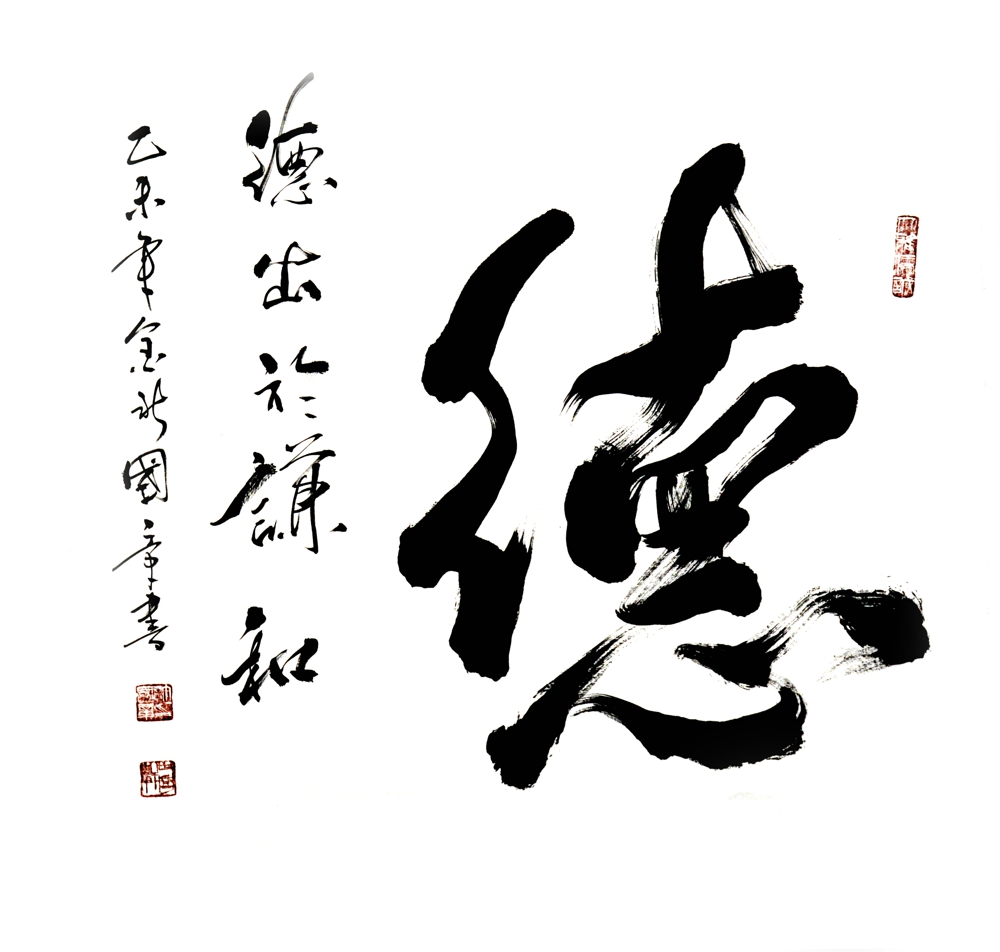 德
德出於謙和
乙未年金秋國章書